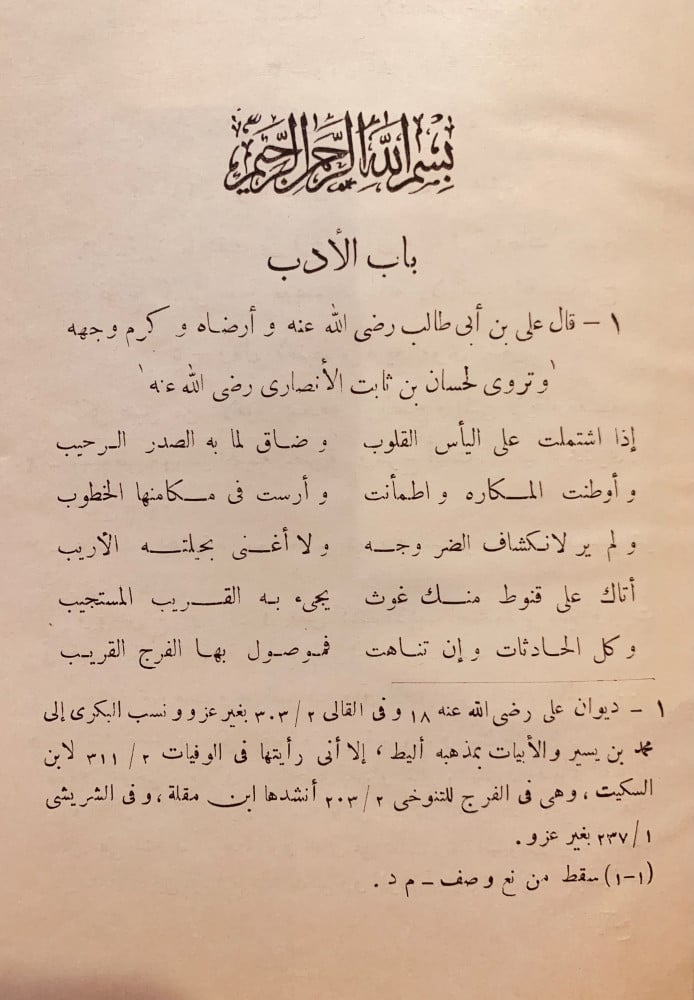 بسم الله الرحمن الرحيم
باب الأدب
١ – قال على بن أبى طالب رضى الله عنه و أرضاه و كرم وجهه
'وتروى لحسان بن ثابت الأنصارى رضى الله عنه'
إذا اشتملت على اليأس القلوب و ضاق لما به الصدر الرحيب
و أوطنت المكاره و اطمأنت و أرست فى مكامنها الخطوب
و لم ير لانكشاف الضر وجه و لا أغنى بحيلته الأريب
أتاك على قنوط منك غوث يجىء به القريب المستجيب
و كل الحادثات و إن تناهت فموصول بها الفرج القريب
١ – ديوان على رضى الله عنه ١٨ و فى القالى ٢ / ٣٠٣ بغير عزو و نسب البكرى إلى
محمد بن يسير والأبيات بمذهبه أليط ، إلا أنى رأيتها فى الوفيات ٢ / ٣١١ لابن
السكيت ، وهى فى الفرج للتنوخى ٢ / ٢٠٣ أنشدها ابن مقلة ، و فى الشريشى
١ / ٢٣٧ بغير عزو .
(١-١) سقط من نع و صف – م د .